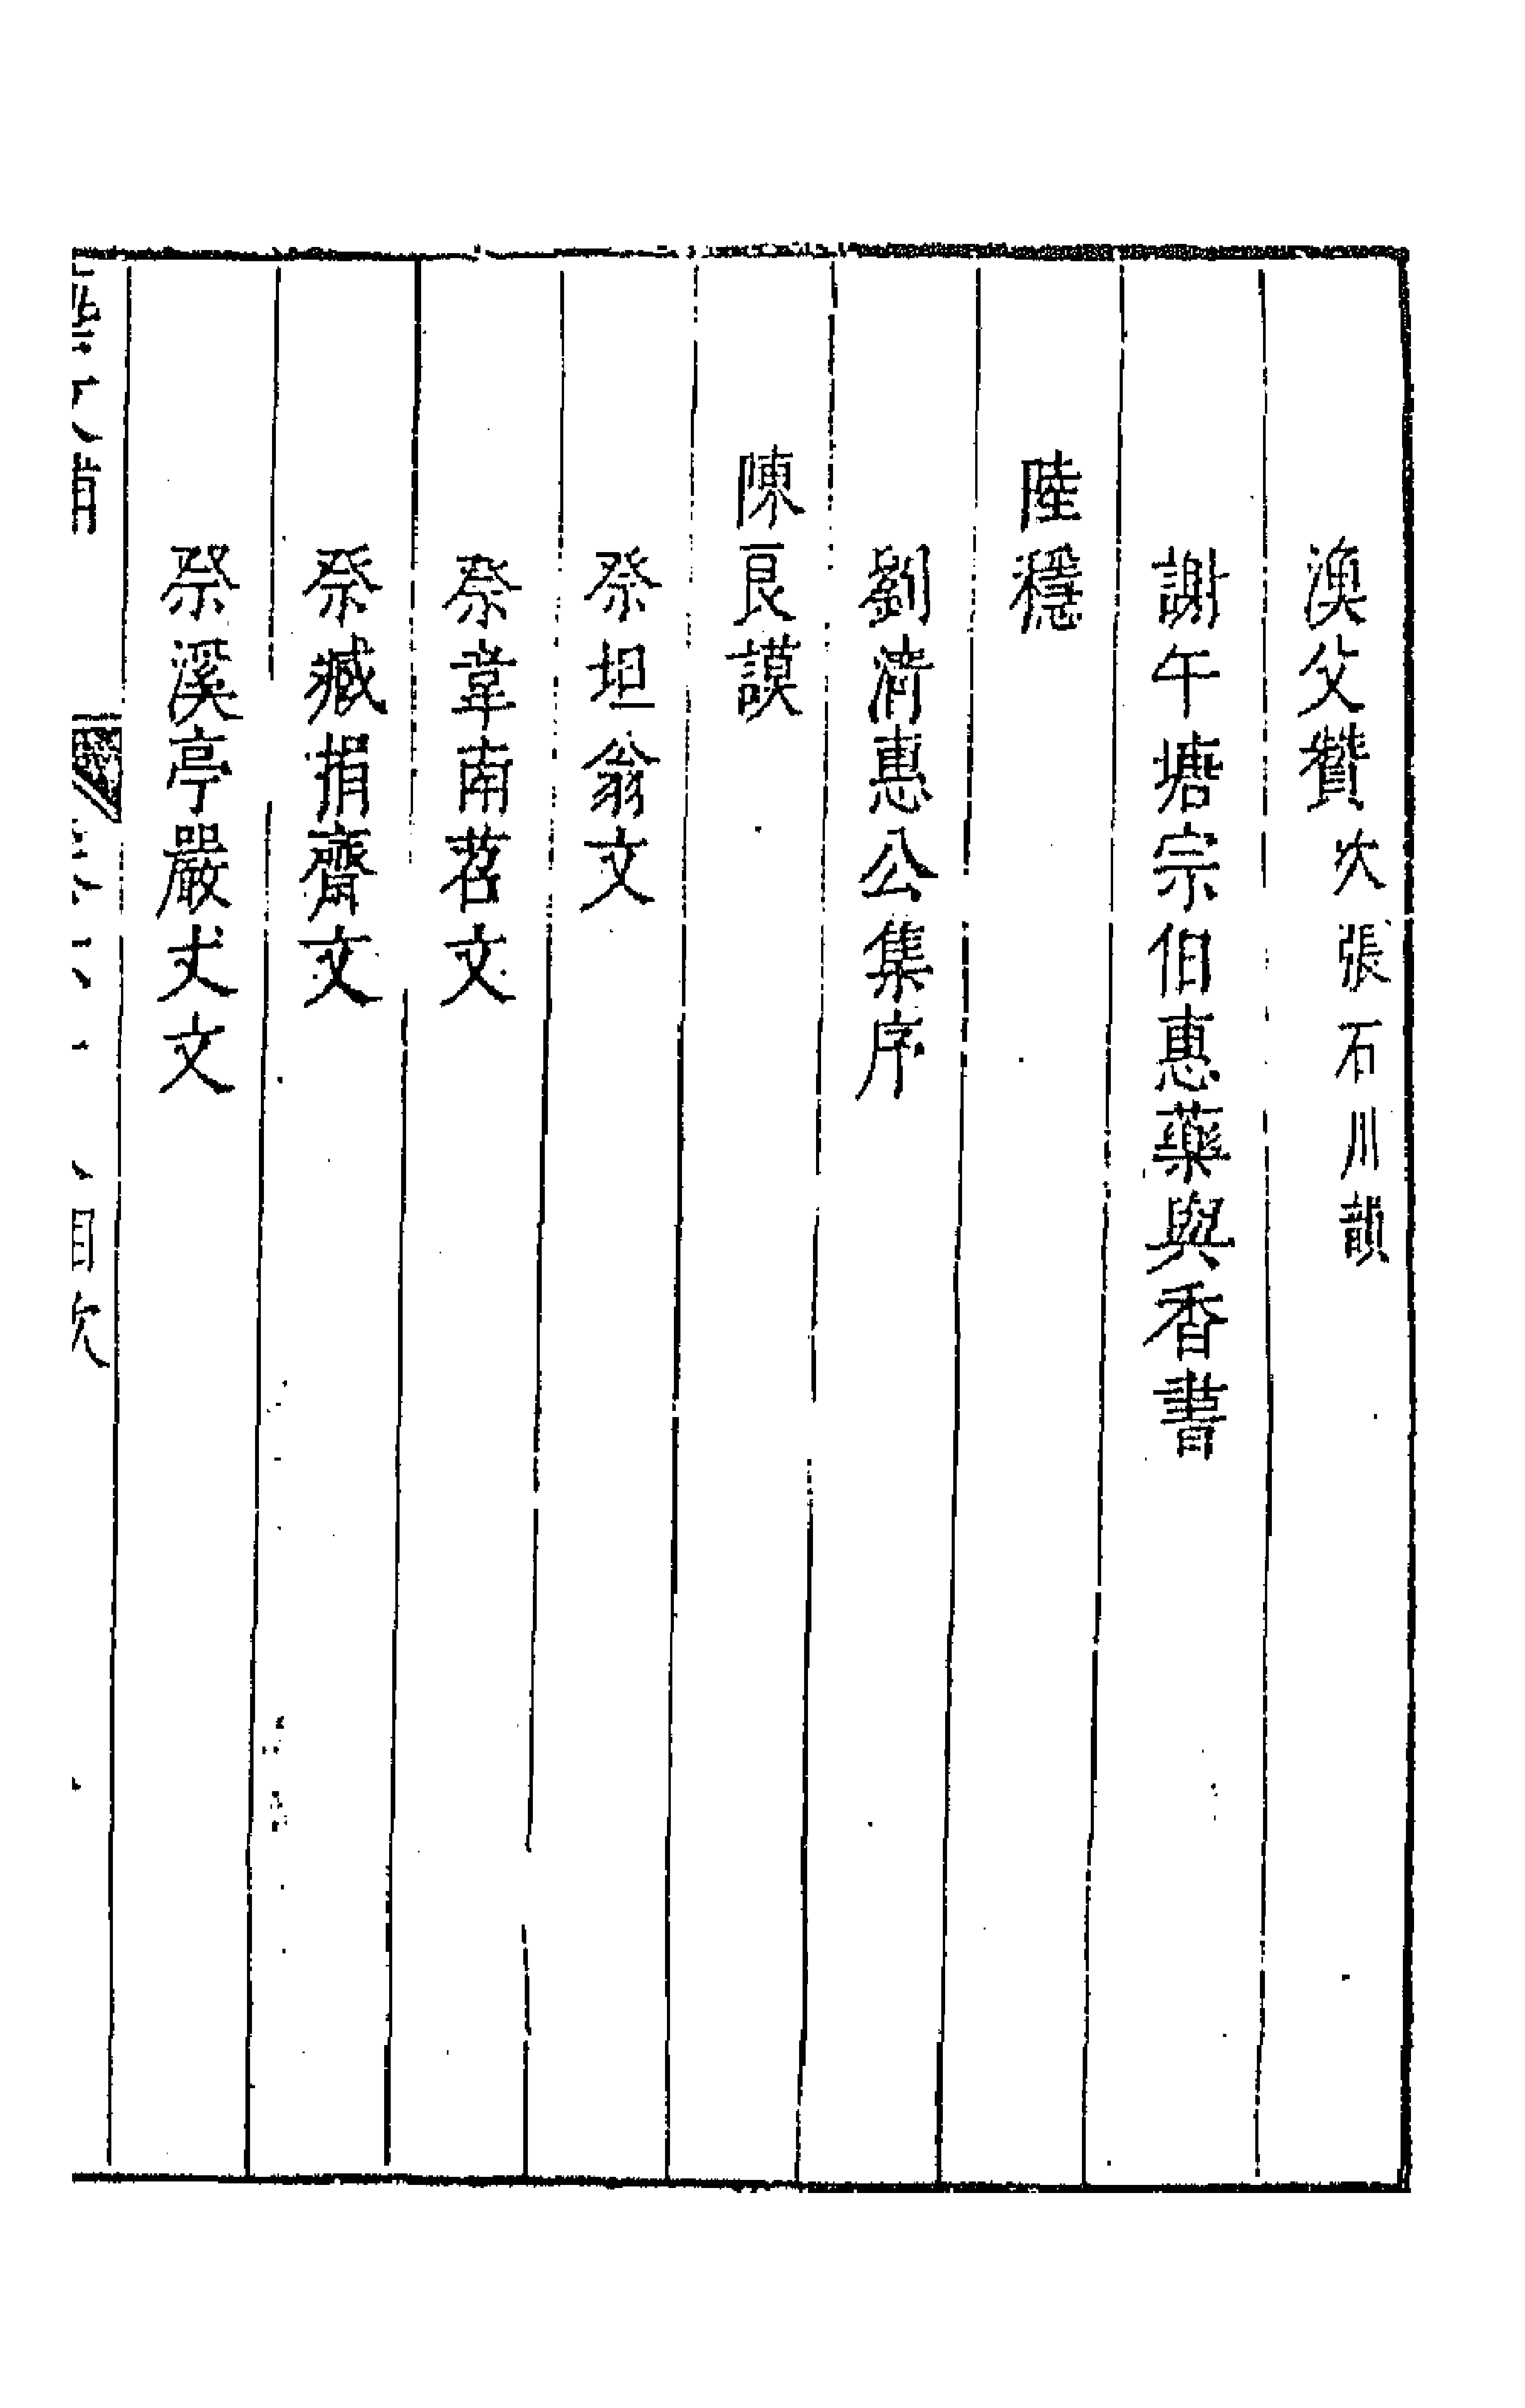 漁父贊次張石川韻
謝午塘宗伯惠藥與香書
陸穩
劉清惠公集序
陳良謨
祭坦翁文
祭韋南苕文
祭臧損齋文
祭溪亭嚴丈文
目次